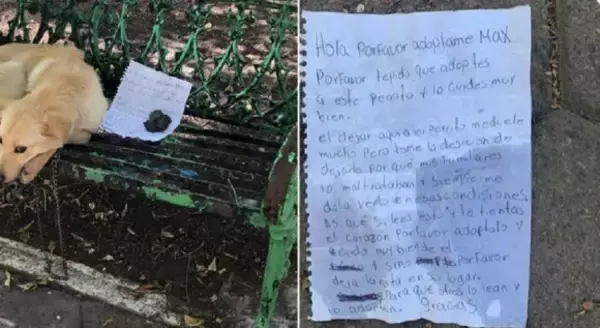 Hola PorFavor adoptame Max
PorFavor te pido que adoptes
a este perrito y lo cuides muy
bien.
el dejar aqui a mi perrito me duele
mucho pero tome la desicion de
dejarlo por que mis familiares
lo maltrataban y siempre me
dolia verlo en esas condisiones.
Es que si lees esto y te tientas
el corazón porFavor adoptalo y
cuida muy bien de el
y sino PorFavor
deja la nota en su lugar.
Para que otros lo lean y
lo adopten. Gracias